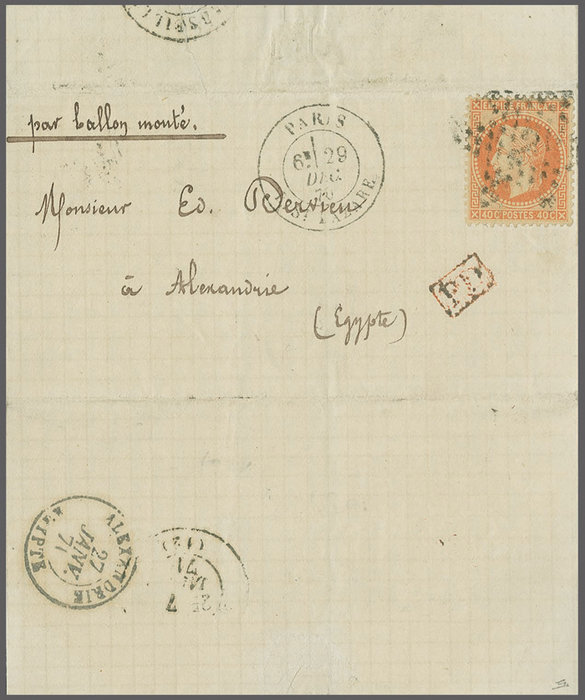 par ballon monté.
PARIS
6E 29
DEC.
70
ST LAZARE
EMPIRE FRANÇAIS
40C POSTES 40C
Monsieur Ed. Dervieu
à Alexandrie
PD
(Egypte)
ALEXANDRIE
27
JANV.
71
EGYPTE
7
71
(12)